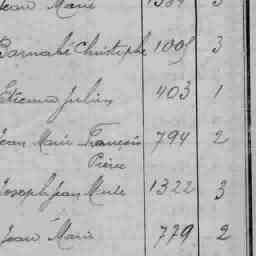 Jean Marie 1384 3
Barnabé Christophe 1005 3
Etienne Julien 403 1
Jean Marie François 794 2
Pierre
Joseph Jean Marie 1322 3
Jean Marie 779 2